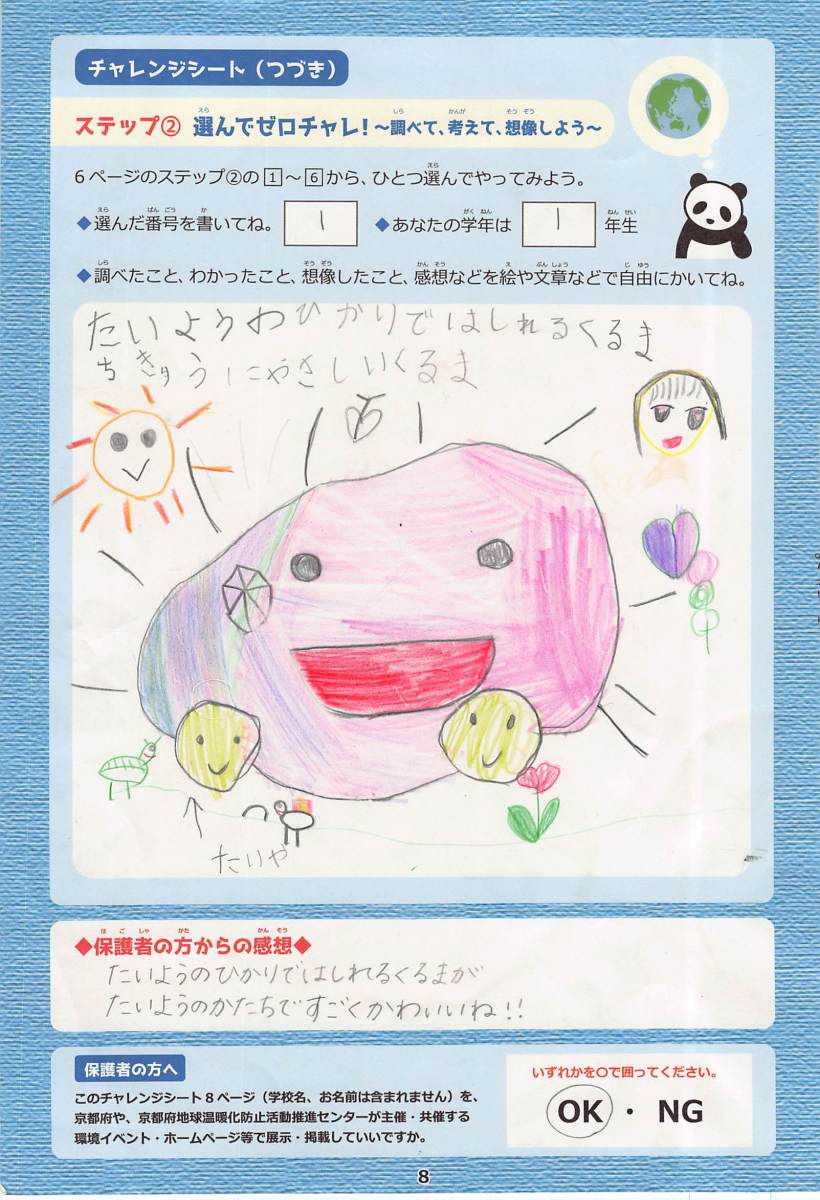 チャレンジシート（つづき）
ステップ② 選んでゼロチャレ！～調べて、考えて、想像しよう～
6ページのステップ②の1～6から、ひとつ選んでやってみよう。
◆選んだ番号を書いてね。 1 ◆あなたの学年は 1 年生
◆調べたこと、わかったこと、想像したこと、感想などを絵や文章などで自由にかいてね。
たいようわひかりではしれるくるま
ちきゅうにやさしいくるま
たいや
◆保護者の方からの感想◆
たいようのひかりではしれるくるまが
たいようのかたちですごくかわいいね!!
保護者の方へ
このチャレンジシート8ページ（学校名、お名前は含まれません）を、
京都府や、京都府地球温暖化防止活動推進センターが主催・共催する
環境イベント・ホームページ等で展示・掲載していいですか。
いずれかを〇で囲ってください。
OK ・ NG
8